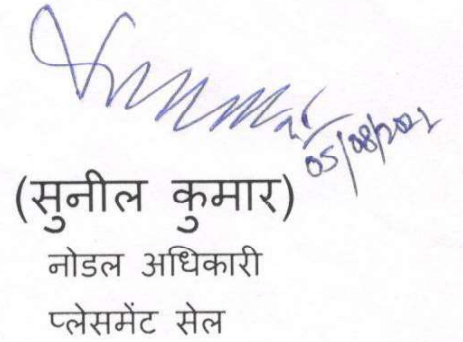 05/08/2022
(सुनील कुमार)
नोडल अधिकारी
प्लेसमेंट सेल